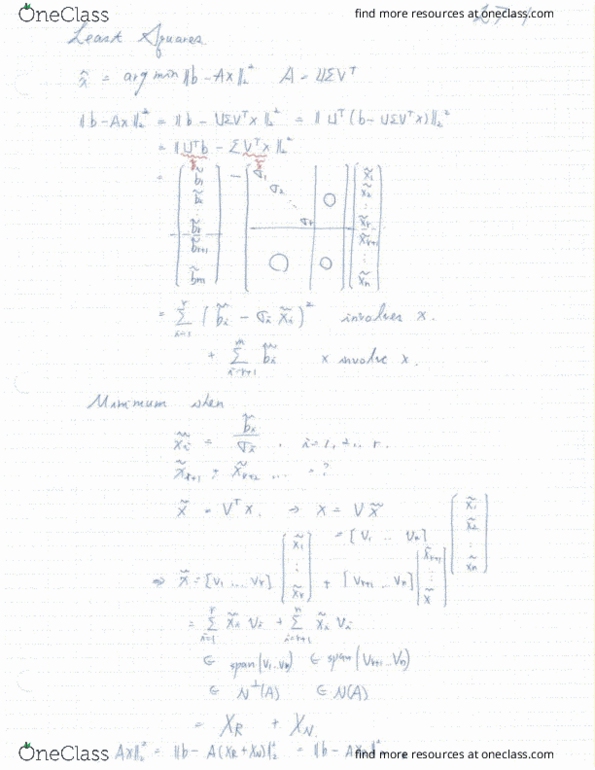 OneClass find more resources at oneclass.com
Least Squares
x̂ = arg min ‖b - Ax‖₂² A = UΣVᵀ
‖b - Ax‖₂² = ‖b - UΣVᵀx‖₂² = ‖Uᵀ(b - UΣVᵀx)‖₂²
= ‖Uᵀb - ΣVᵀx‖₂²
= [b̃₁ b̃₂ ⋮ b̃ᵣ b̃ᵣ₊₁ ⋮ b̃ₘ] - [σ₁ σ₂ ⋱ σᵣ O O O] [x̃₁ x̃₂ ⋮ x̃ᵣ x̃ᵣ₊₁ ⋮ x̃ₙ]
= Σᵢ₌₁ʳ (b̃ᵢ - σᵢ x̃ᵢ)² involves x.
+ Σᵢ₌ᵣ₊₁ᵐ b̃ᵢ x involve x.
Minimum when
x̃ᵢ = b̃ᵢ/σᵢ , i = 1, 2 .. r.
x̃ᵣ₊₁ = x̃ᵣ₊₂ ... = ?
x̃ = Vᵀx. → x = Vx̃
= [v₁ .. vₙ] [x̃₁ x̃₂ ⋮ x̃ₙ]
⇒ x̃ = [v₁ ... vᵣ] [x̃₁ ⋮ x̃ᵣ] + [vᵣ₊₁ ... vₙ] [x̃ᵣ₊₁ ⋮ x̃]
= Σᵢ₌₁ʳ x̃ᵢ vᵢ + Σᵢ₌ᵣ₊₁ⁿ x̃ᵢ vᵢ
∈ span(v₁..vᵣ) ∈ span(vᵣ₊₁..vₙ)
∈ N⊥(A) ∈ N(A)
= X_R + X_N.
Ax‖₂² = ‖b - A(x_R + x_N)‖₂² = ‖b - Ax
OneClass find more resources at oneclass.com